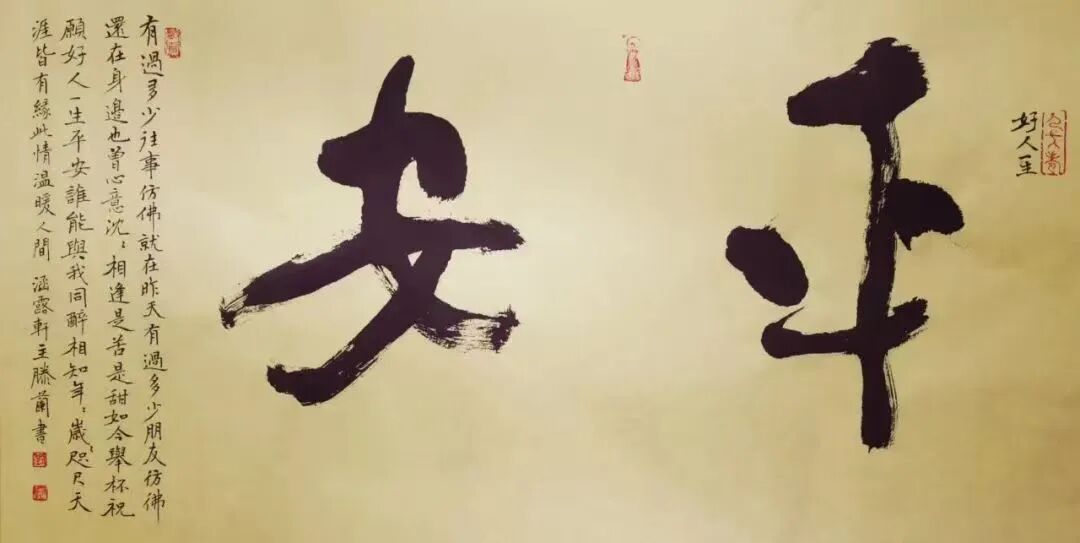 好人一生
平安
有過多少往事仿佛就在昨天有過多少朋友仿佛
還在身邊也曾心意沈〻相逢是苦是甜如今舉杯祝
願好人一生平安誰能與我同醉相知年〻歲〻咫尺天
涯皆有緣此情温暖人間 涵露軒主滕蘭書